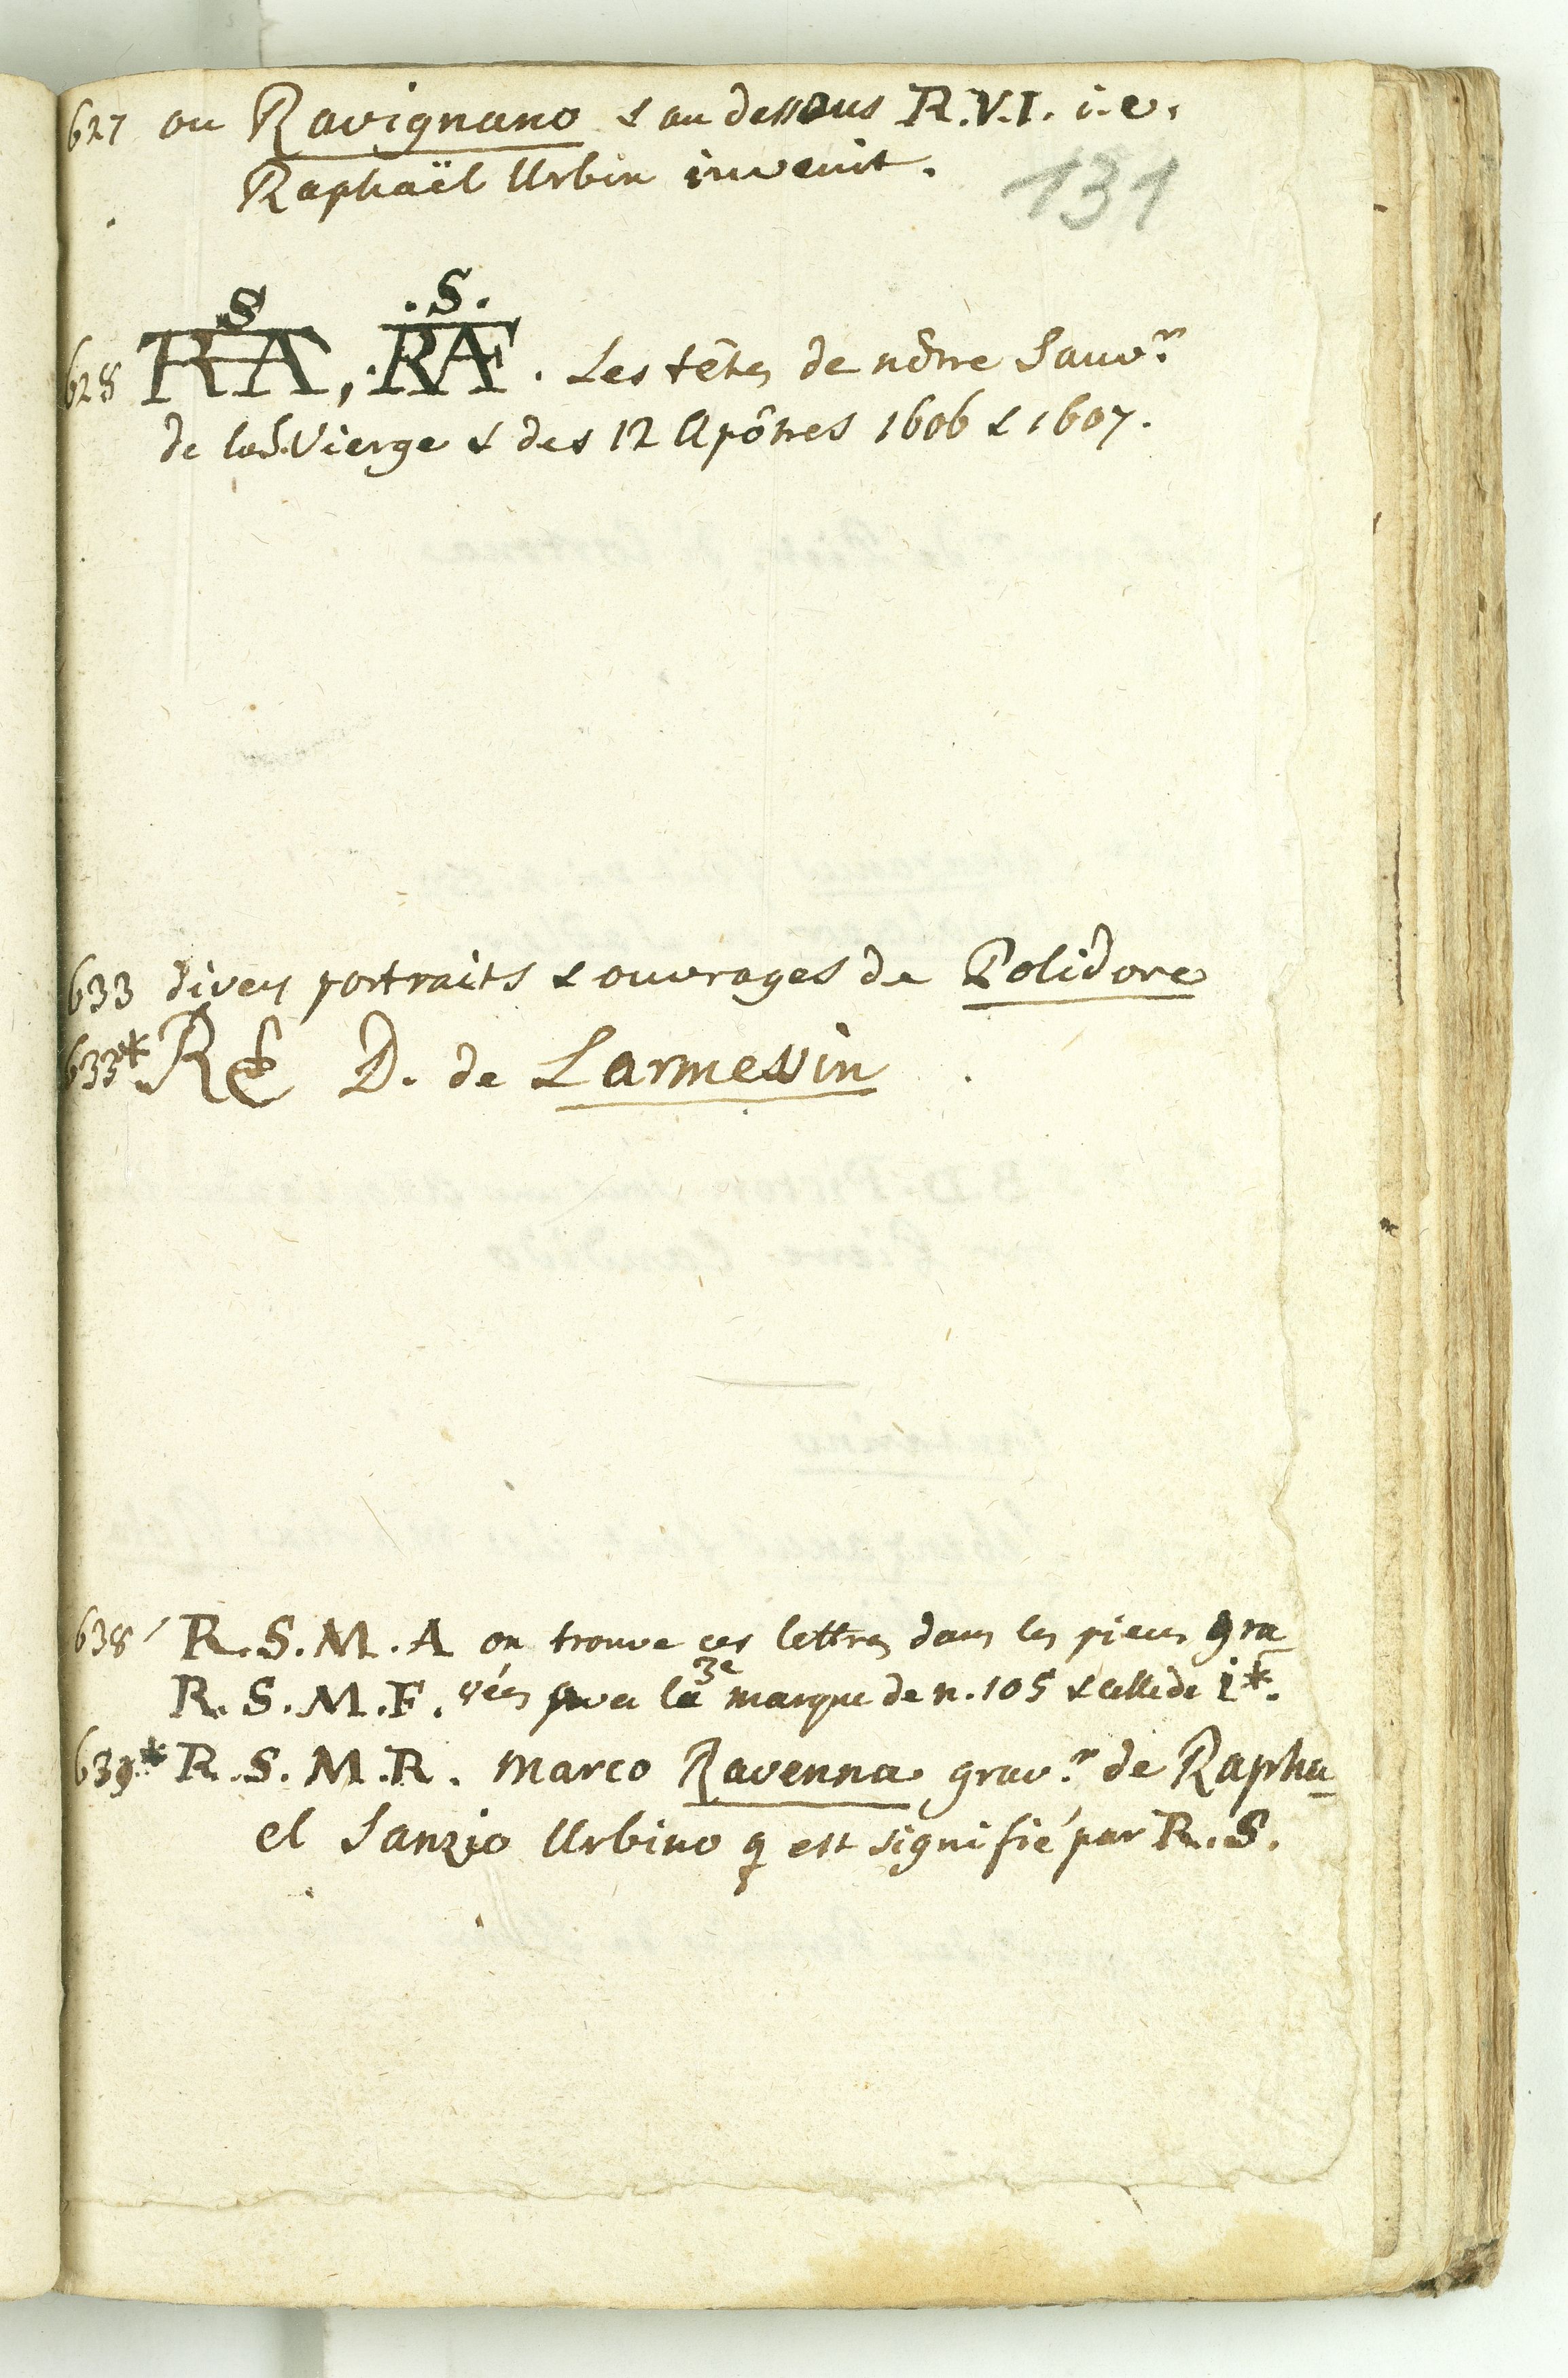 627 ou Ravignano & au dessous R.V.I. i.e.
Raphaël Urbin invenit.
131
S .S.
628 RA, .RAF. Les têtes de nôtre Sauvr
de la S. Vierge & des 12 Apôtres 1606 & 1607.
633 divers portraits & ouvrages de Polidore
633* R& D. de Larmessin
638 R.S.M.A on trouve ces lettres dans les pieces gra
R.S.M.F. vées avec la 3e marque de n. 105 & celle de i*.
639* R.S.M.R. Marco Ravenna gravr de Rapha
el Sanzio Urbino q est signifié par R.S.